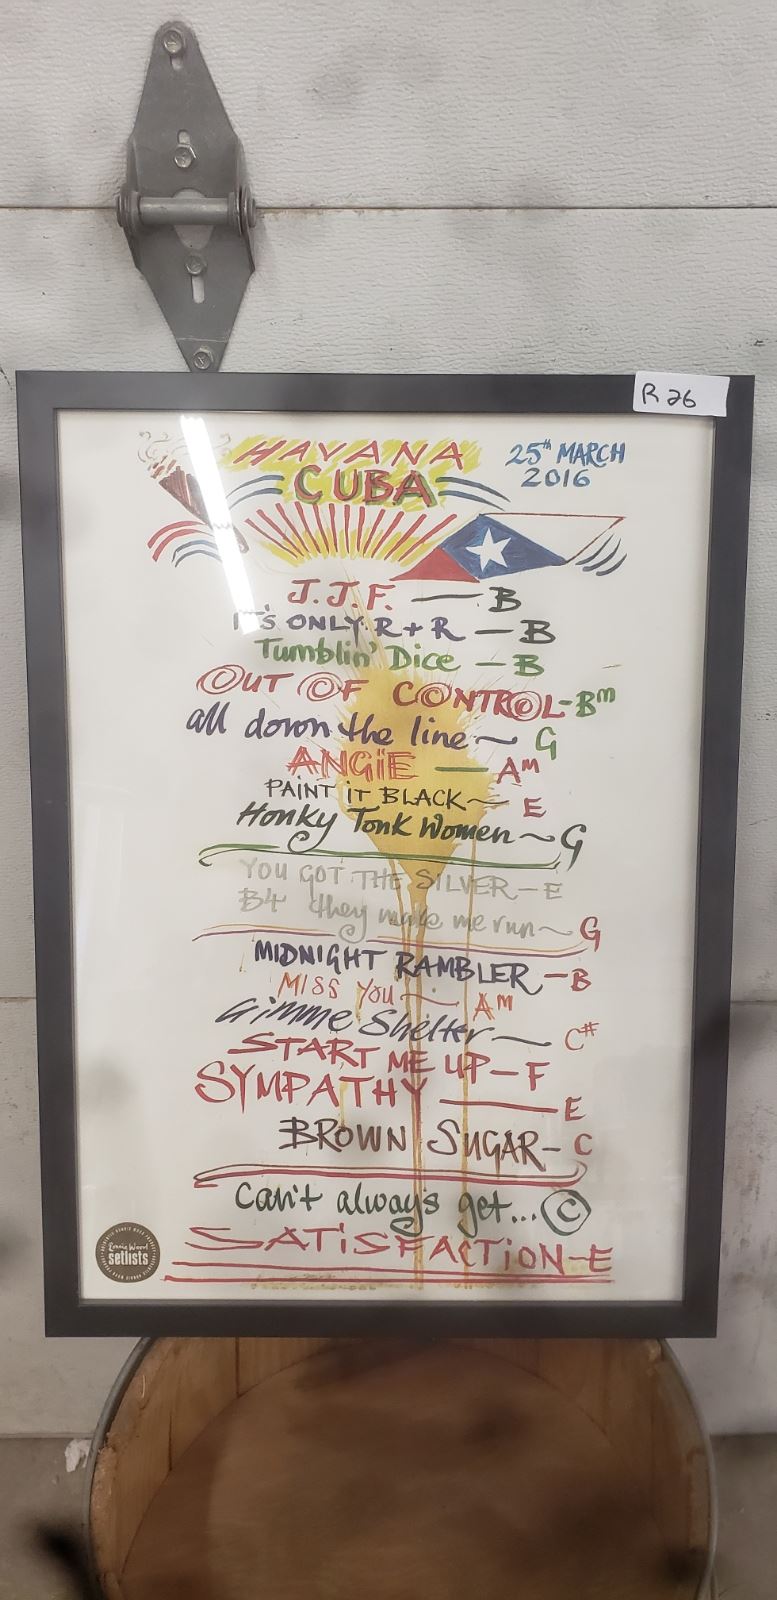 R 26
HAVANA
CUBA
25th MARCH
2016
J.J.F. — B
IT'S ONLY R + R — B
Tumblin' Dice — B
OUT OF CONTROL - Bm
all down the line ~ G
ANGIE — Am
PAINT IT BLACK ~ E
Honky Tonk Women ~ G
YOU GOT THE SILVER — E
B4 they make me run ~ G
MIDNIGHT RAMBLER — B
MISS YOU ~ Am
Gimme Shelter ~ C#
START ME UP — F
SYMPATHY — E
BROWN SUGAR - C
Can't always get... ©
SATiSFACTiON - E
Ronnie Wood
setlists